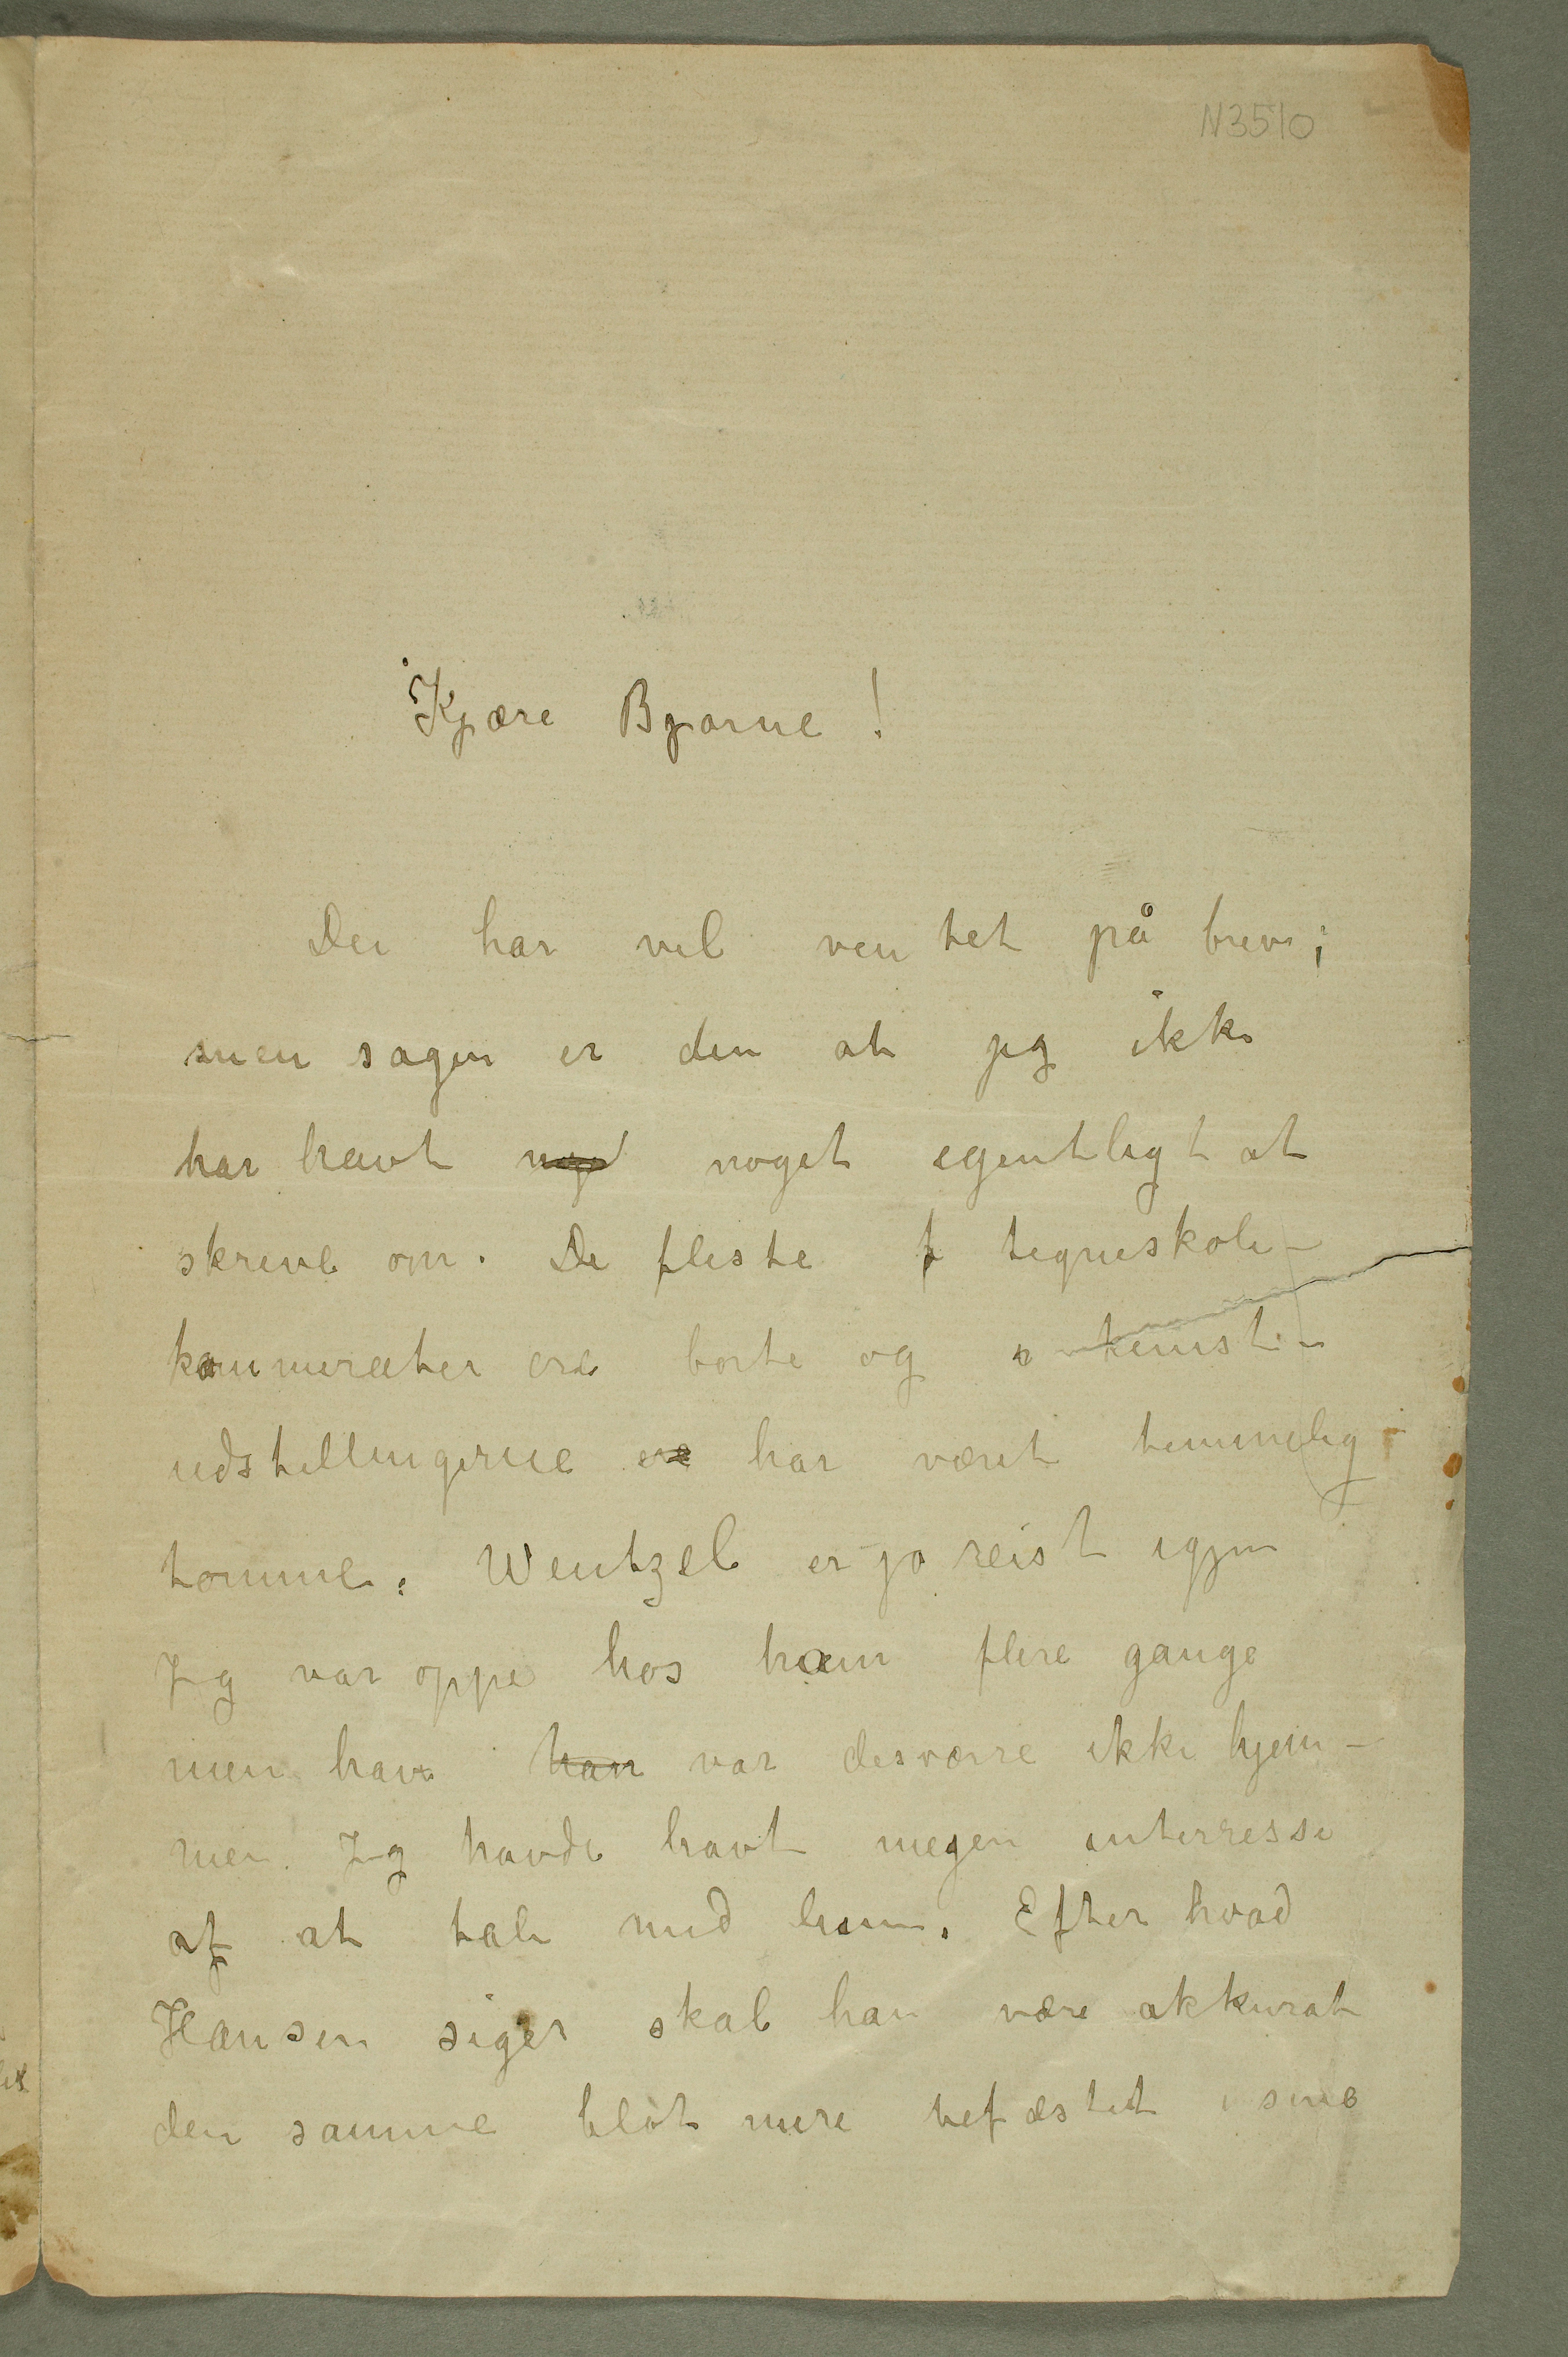 N3510
Kjære Bjarne!
Du har vel ventet på brev;
men sagen er den at jeg ikke
har havt noget egentligt at
skrive om. De fleste tegneskole-
kammerater ere borte og kunst-
udstillingerne ere har været temmelig
tomme. Wentzel er jo reist igjen
Jeg var oppe hos ham flere gange
men han han var desværre ikke hjem-
me. Jeg havde havt megen interresse
af at tale med ham. Efter hvad
Hansen siger skal han være akkurat
den samme blot mere befæstet i sine